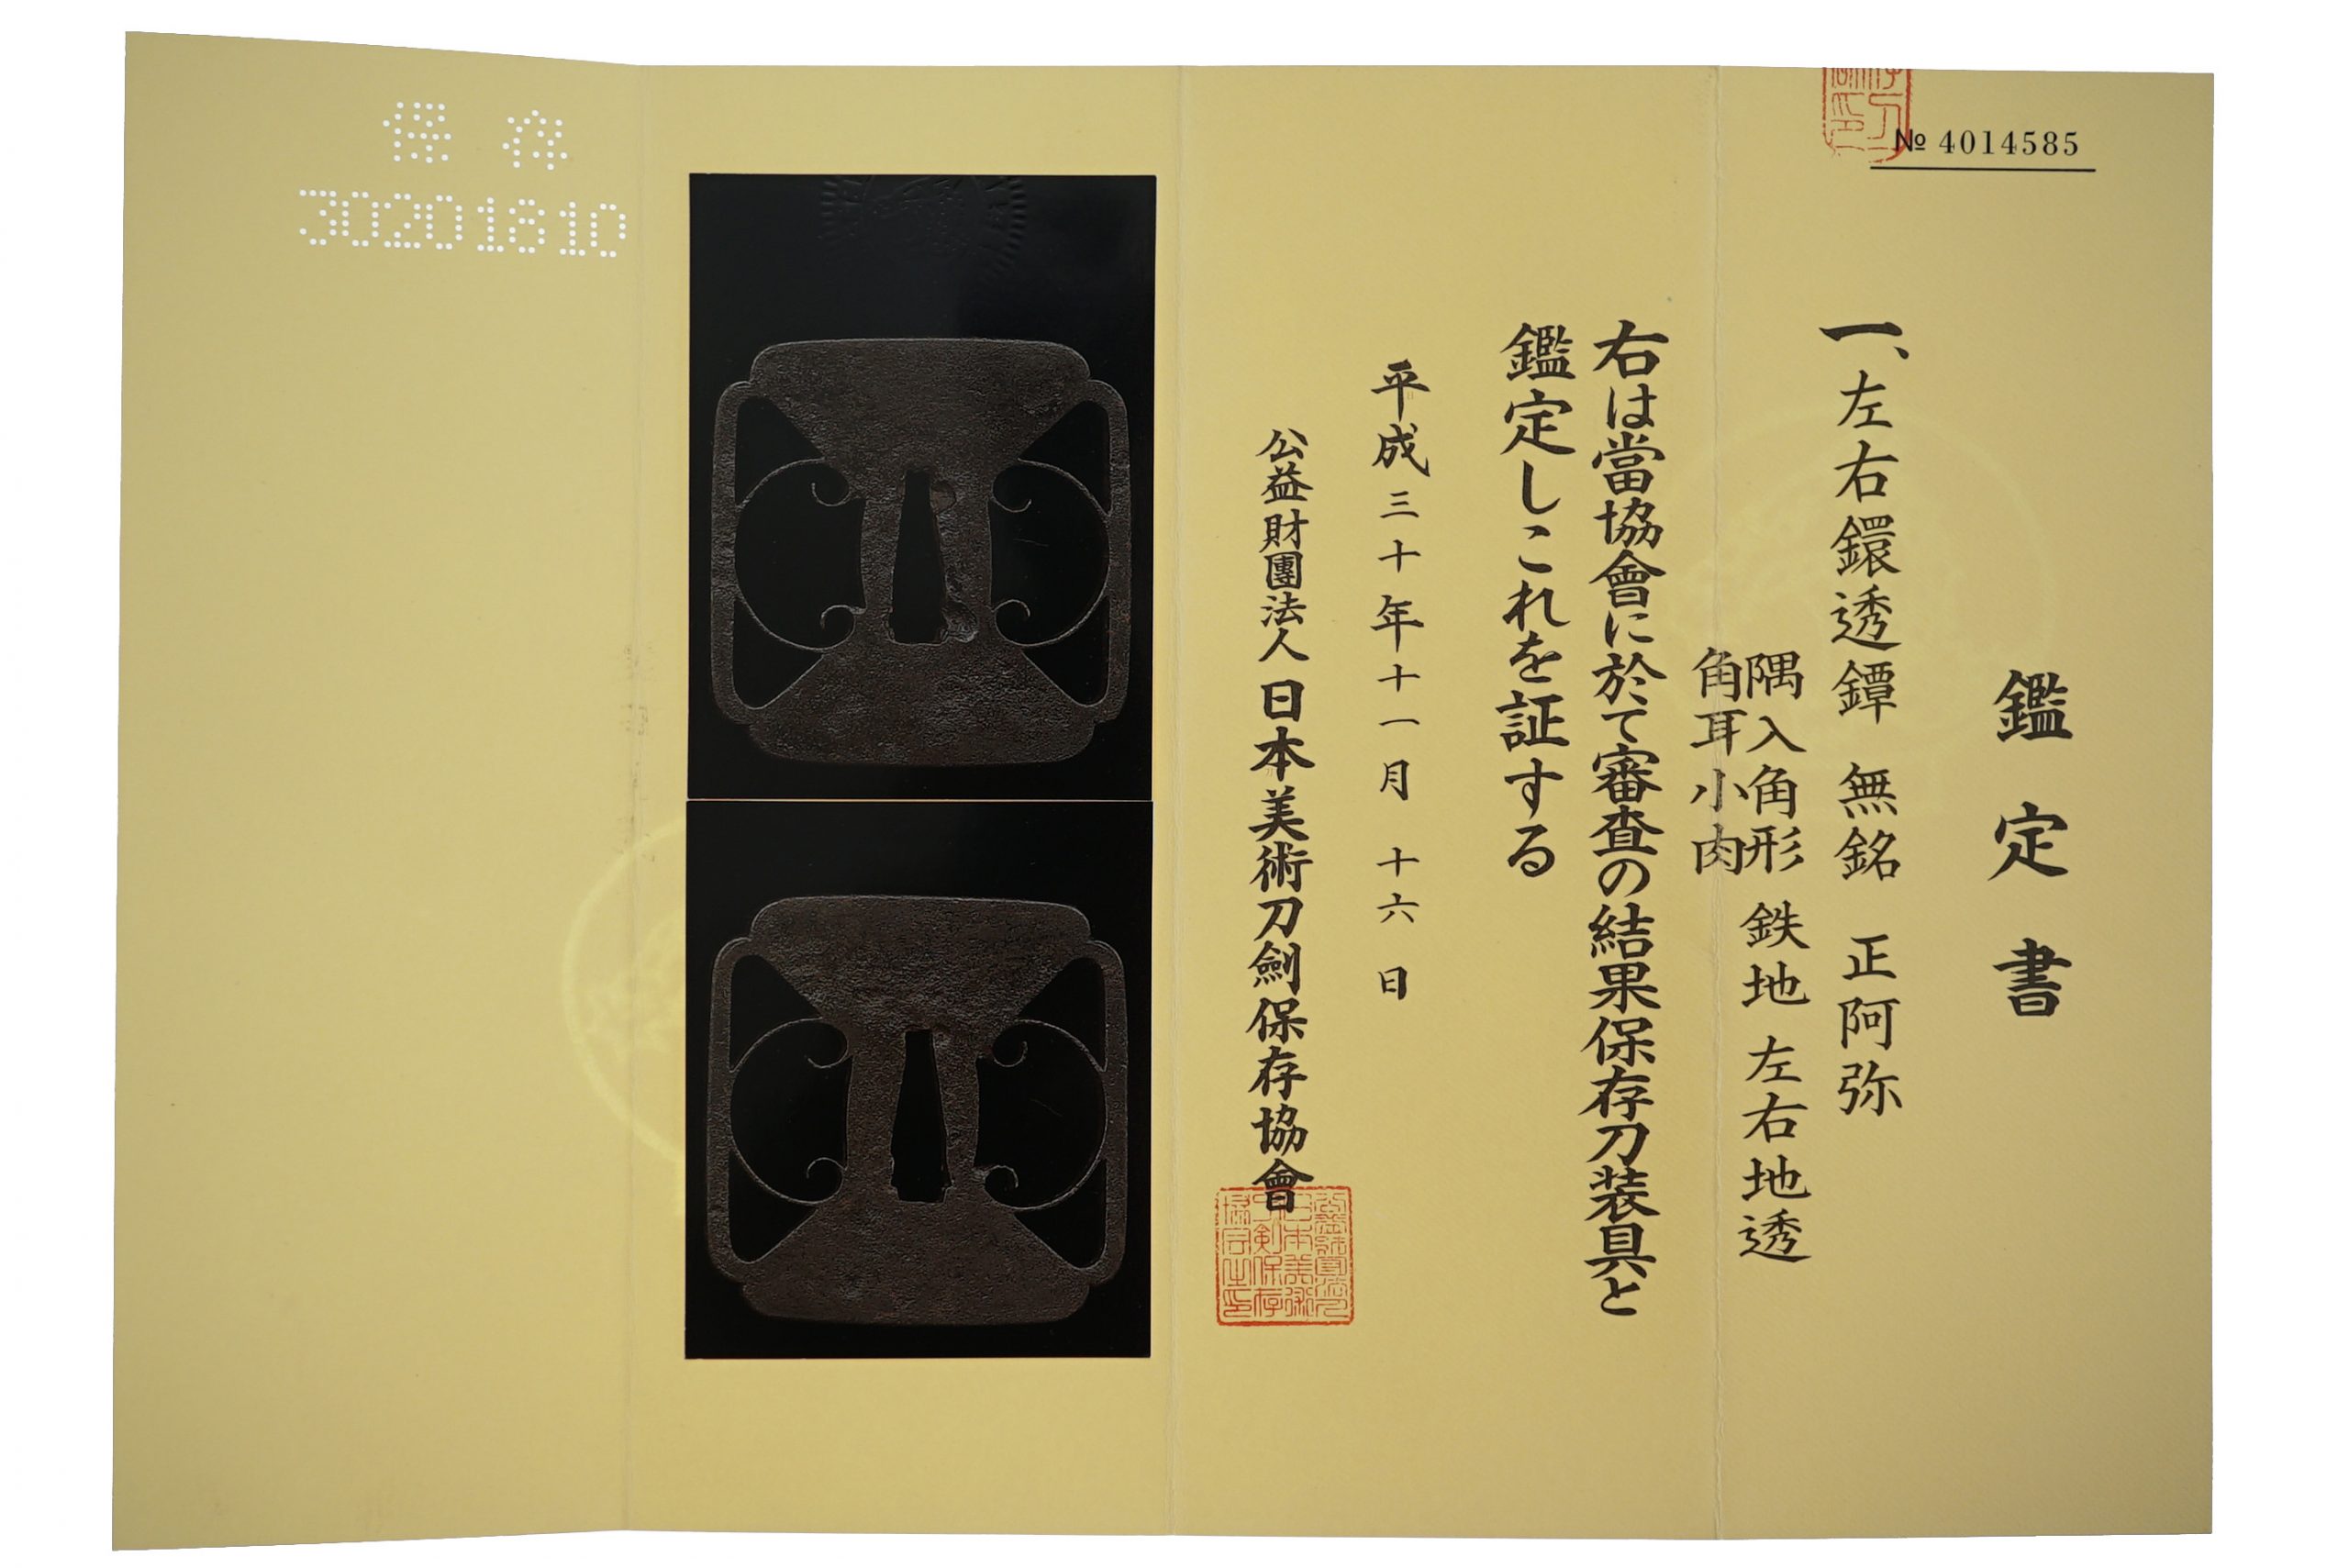 № 4014585
鑑定書
一、左右鐶透鐔 無銘 正阿弥
隅入角形 鉄地 左右地透
角耳小肉
右は當協會に於て審査の結果保存刀装具と
鑑定しこれを証する
平成三十年十一月十六日
公益財團法人日本美術刀劍保存協會
保存
30201810